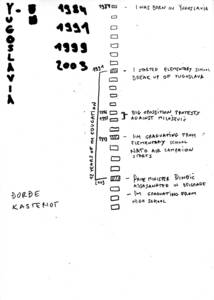 YUGOSLAVIA
1984
1991
1999
2003
1984
I WAS BORN IN YUGOSLAVIA
1991
I STARTED ELEMENTARY SCHOOL
BREAK UP OF YUGOSLAVIA
12 YEARS OF MY EDUCATION
1996
BIG OPPOSITION PROTESTS
AGAINST MILOŠEVIĆ
1999
I'M GRADUATING FROM
ELEMENTARY SCHOOL
NATO AIR CAMPAIGN
STARTS
2003
PRIME MINISTER ĐINĐIĆ
ASSASINATED IN BELGRADE
I'M GRADUATING FROM
HIGH SCHOOL
ĐORĐE